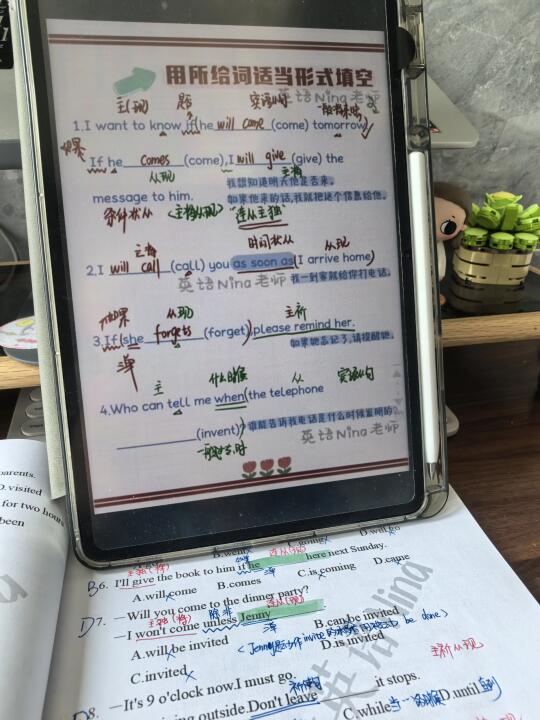 用所给词适当形式填空
英语Nina老师
主(现) 是否 宾语从句 一般将来时
1.I want to know if(he will come (come) tomorrow)
如果
If he comes (come),I will give (give) the
从现 主将
message to him.
我想知道明天他是否来。
如果他来的话,我就把这个信息给他。
条件状从 (主将从现) "连从主独"
主将 时间状从 从现
2.I will call (call) you as soon as(I arrive home)
英语Nina老师 我一到家就给你打电话。
如果 从现 主祈
3.If(she forgets (forget)),please remind her.
单 如果她忘记了,请提醒她。
主 什么时候 从 宾语从句
4.Who can tell me when(the telephone
(invent))
谁能告诉我电话是什么时候发明的?
英语Nina老师
一般过去时
parents.
D.visited
for two hours
been
B.went C.going D.will go
B6. I'll give the book to him if he here next Sunday.
A.will come B.comes C.is coming D.came
—Will you come to the dinner party?
D7. —I won't come unless Jenny
除非
单
A.will be invited B.can be invited
C.invited D.is invited
主祈从现
D8. —It's 9 o'clock now.I must go.
祈使句
outside.Don't leave it stops.
C.while D.until
英语Nina